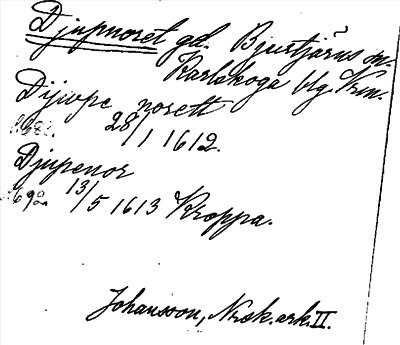 Djupnoret gd. Bjurtjärns sn.
Karlskoga blg. Krm.
Dijwpe norett
28/1 1612.
Djupenor
13/5 1613 Kroppa.
Johansson, Nrsk. ark. II.